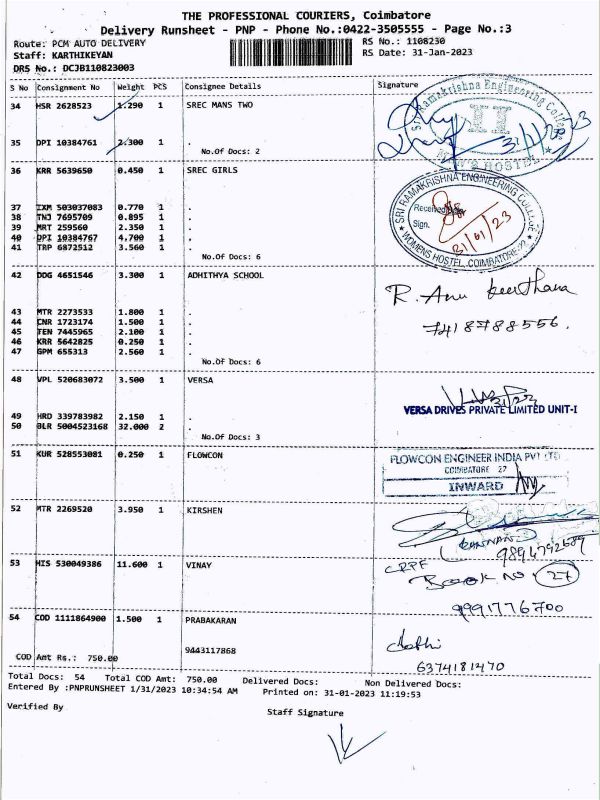 THE PROFESSIONAL COURIERS, Coimbatore
Delivery Runsheet - PNP - Phone No.:0422-3505555 - Page No.:3
Route: PCM AUTO DELIVERY
RS No.: 1108230
Staff: KARTHIKEYAN
RS Date: 31-Jan-2023
DRS No.: DCJB110823003
S No Consignment No Weight PCS Consignee Details Signature
34 HSR 2628523 1.290 1 SREC MANS TWO
35 DPI 10384761 2.300 1 .
No.Of Docs: 2
Sri Ramakrishna Engineering College
II
31/1/2023
MEN'S HOSTEL
36 KRR 5639650 0.450 1 SREC GIRLS
37 IXM 503037083 0.770 1 .
38 TNJ 7695709 0.895 1 .
39 MRT 259560 2.350 1 .
40 DPI 10384767 4.700 1 .
41 TRP 6872512 3.560 1 .
No.Of Docs: 6
SRI RAMAKRISHNA ENGINEERING COLLEGE
Received
Sign.
31/01/23
WOMENS HOSTEL, COIMBATORE-22
42 DDG 4651546 3.300 1 ADHITHYA SCHOOL
43 MTR 2273533 1.800 1 .
44 CNR 1723174 1.500 1 .
45 TEN 7445965 2.100 1 .
46 KRR 5642825 0.250 1 .
47 GPM 655313 2.560 1 .
No.Of Docs: 6
R. Anu keerthana
7418788556.
48 VPL 520683072 3.500 1 VERSA
49 HRD 339783982 2.150 1 .
50 BLR 5004523168 32.000 2 .
No.Of Docs: 3
VERSA DRIVES PRIVATE LIMITED UNIT-I
51 KUR 528553081 0.250 1 FLOWCON
FLOWCON ENGINEER INDIA PVT LTD
COIMBATORE 27
INWARD
52 MTR 2269520 3.950 1 KIRSHEN
9894792689
53 HIS 530049386 11.600 1 VINAY
CRPF
Book No. 27
9991776700
54 COD 1111864900 1.500 1 PRABAKARAN
9443117868
COD Amt Rs.: 750.00
6374181470
Total Docs: 54 Total COD Amt: 750.00 Delivered Docs: Non Delivered Docs:
Entered By :PNPRUNSHEET 1/31/2023 10:34:54 AM Printed on: 31-01-2023 11:19:53
Verified By
Staff Signature